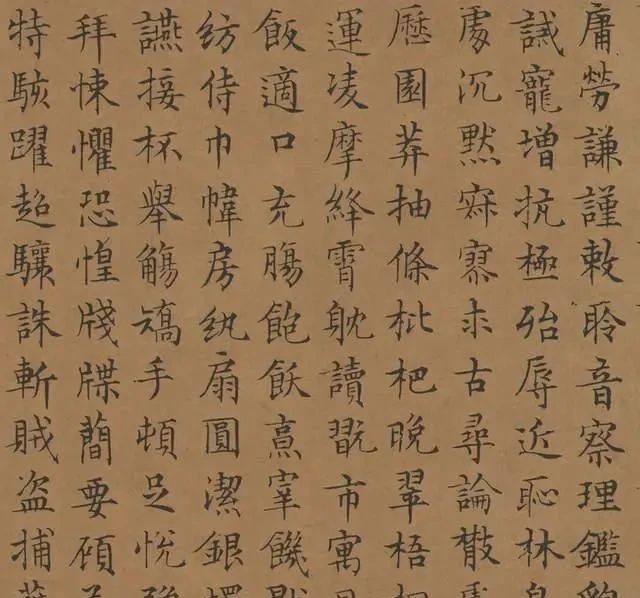 庸勞謙謹敕聆音察理鑑
誡寵增抗極殆辱近恥林
處沉默寂寥求古尋論散
歷園莽抽條枇杷晚翠梧
運凌摩絳霄躭讀翫市寓
飯適口充腸飽飫烹宰饑
紡侍巾幃房紈扇圓潔銀
讌接杯舉觴矯手頓足悅
拜悚懼恐惶牋牒簡要顧
特駭躍超驤誅斬賊盜捕